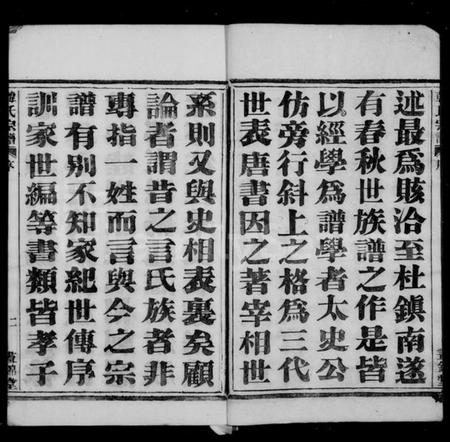 述最爲賅洽至杜鎮南遂
有春秋世族譜之作是皆
以經學爲譜學者太史公
仿旁行斜上之格爲三代
世表唐書因之著宰相世
系則又與史相表裏矣顧
論者謂昔之言氏族者非
專指一姓而言與今之宗
譜有别不知家紀世傳序
訓家世編等書類皆孝子
氏宗譜
序
二